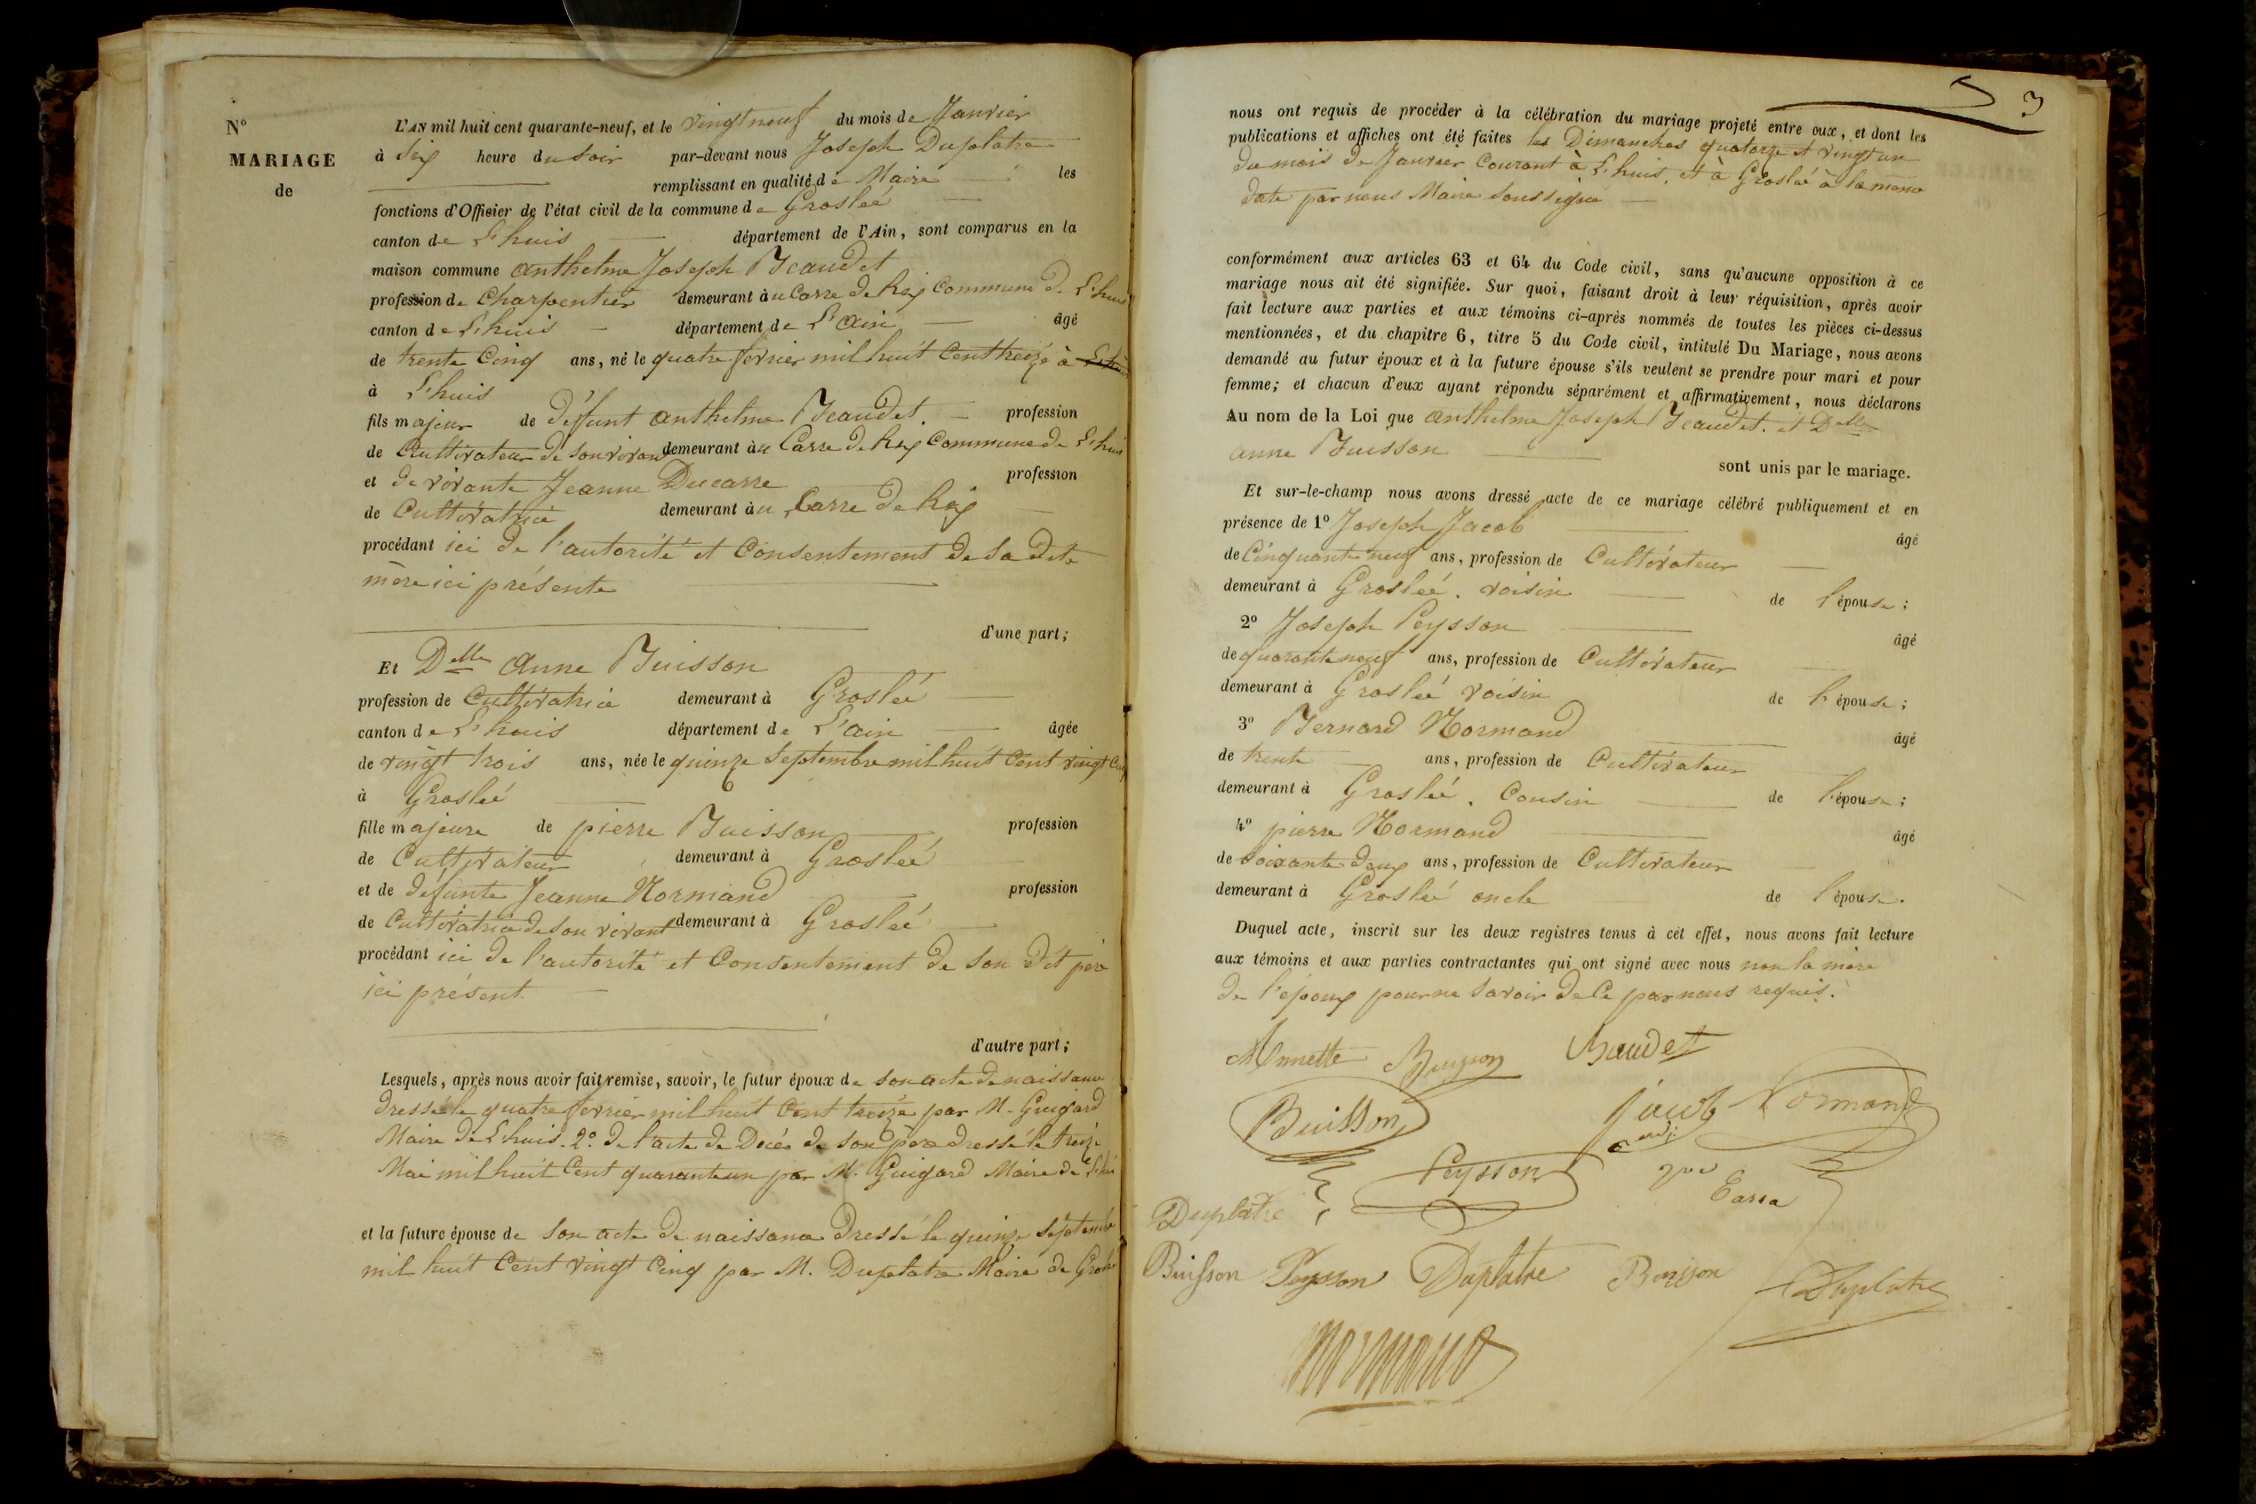 N°
MARIAGE
de
L'AN mil huit cent quarante-neuf, et le vingt neuf du mois de Janvier
à Six heure du Soir par-devant nous Joseph Duplatre
remplissant en qualité de Maire les
fonctions d'Officier de l'état civil de la commune de Groslée
canton de L'huis département de l'Ain, sont comparus en la
maison commune anthelme Joseph Beaudet
profession de Charpentier demeurant au Carre de Rix Commune de L'huis
canton de L'huis département de L'ain âgé
de trente Cinq ans, né le quatre fevrier mil huit Cent treize à
à L'huis
fils majeur de défunt anthelme Beaudet profession
de Cultivateur de son vivant demeurant au Carre de Rix Commune de L'huis
et de vivante Jeanne Ducarre profession
de Cultivatrice demeurant au Carre de Rix
procédant ici de l'autorité et Consentement de sa dite
mère ici présente
d'une part;
Et Delle Anne Buisson
profession de Cultivatrice demeurant à Groslée
canton de L'huis département de L'ain âgée
de vingt trois ans, née le quinze Septembre mil huit Cent vingt Cinq
à Groslée
fille majeure de pierre Buisson profession
de Cultivateur demeurant à Groslée
et de défunte Jeanne Normand profession
de Cultivatrice de son vivant demeurant à Groslée
procédant ici de l'autorité et Consentement de son dit père
ici présent
d'autre part;
Lesquels, après nous avoir fait remise, savoir, le futur époux de son acte de naissance
dressé le quatre fevrier mil huit Cent treize par M. Guigard
Maire de L'huis. 2° de l'acte de Décès de son père dressé le treize
Mai mil huit Cent quarante un par M. Guigard Maire de L'huis
et la future épouse de son acte de naissance dressé le quinze septembre
mil huit Cent vingt Cinq par M. Duplatre Maire de Groslée
3
nous ont requis de procéder à la célébration du mariage projeté entre eux, et dont les
publications et affiches ont été faites les Dimanches quatorze et vingt un
du mois de Janvier Courant à L'huis, et à Groslée à la même
date par nous Maire soussigné
conformément aux articles 63 et 64 du Code civil, sans qu'aucune opposition à ce
mariage nous ait été signifiée. Sur quoi, faisant droit à leur réquisition, après avoir
fait lecture aux parties et aux témoins ci-après nommés de toutes les pièces ci-dessus
mentionnées, et du chapitre 6, titre 5 du Code civil, intitulé Du Mariage, nous avons
demandé au futur époux et à la future épouse s'ils veulent se prendre pour mari et pour
femme; et chacun d'eux ayant répondu séparément et affirmativement, nous déclarons
Au nom de la Loi que anthelme Joseph Beaudet. et Delle
anne Buisson
sont unis par le mariage.
Et sur-le-champ nous avons dressé acte de ce mariage célébré publiquement et en
présence de 1° Joseph Jacob
âgé
de Cinquante neuf ans, profession de Cultivateur
demeurant à Groslée. voisin de l'épouse;
2° Joseph Peysson
âgé
de quarante neuf ans, profession de Cultivateur
demeurant à Groslée voisin de l'épouse;
3° Bernard Normand
âgé
de trente ans, profession de Cultivateur
demeurant à Groslée. Cousin de l'épouse;
4° pierre Normand
âgé
de soixante deux ans, profession de Cultivateur
demeurant à Groslée oncle de l'épouse.
Duquel acte, inscrit sur les deux registres tenus à cet effet, nous avons fait lecture
aux témoins et aux parties contractantes qui ont signé avec nous non la mère
de l'époux pour ne savoir de ce par nous requis.
Annette Buisson Baudet
Buisson Jacob Normand
Peysson
Duplatre
Buisson Peysson Duplatre Buisson Duplatre
normand